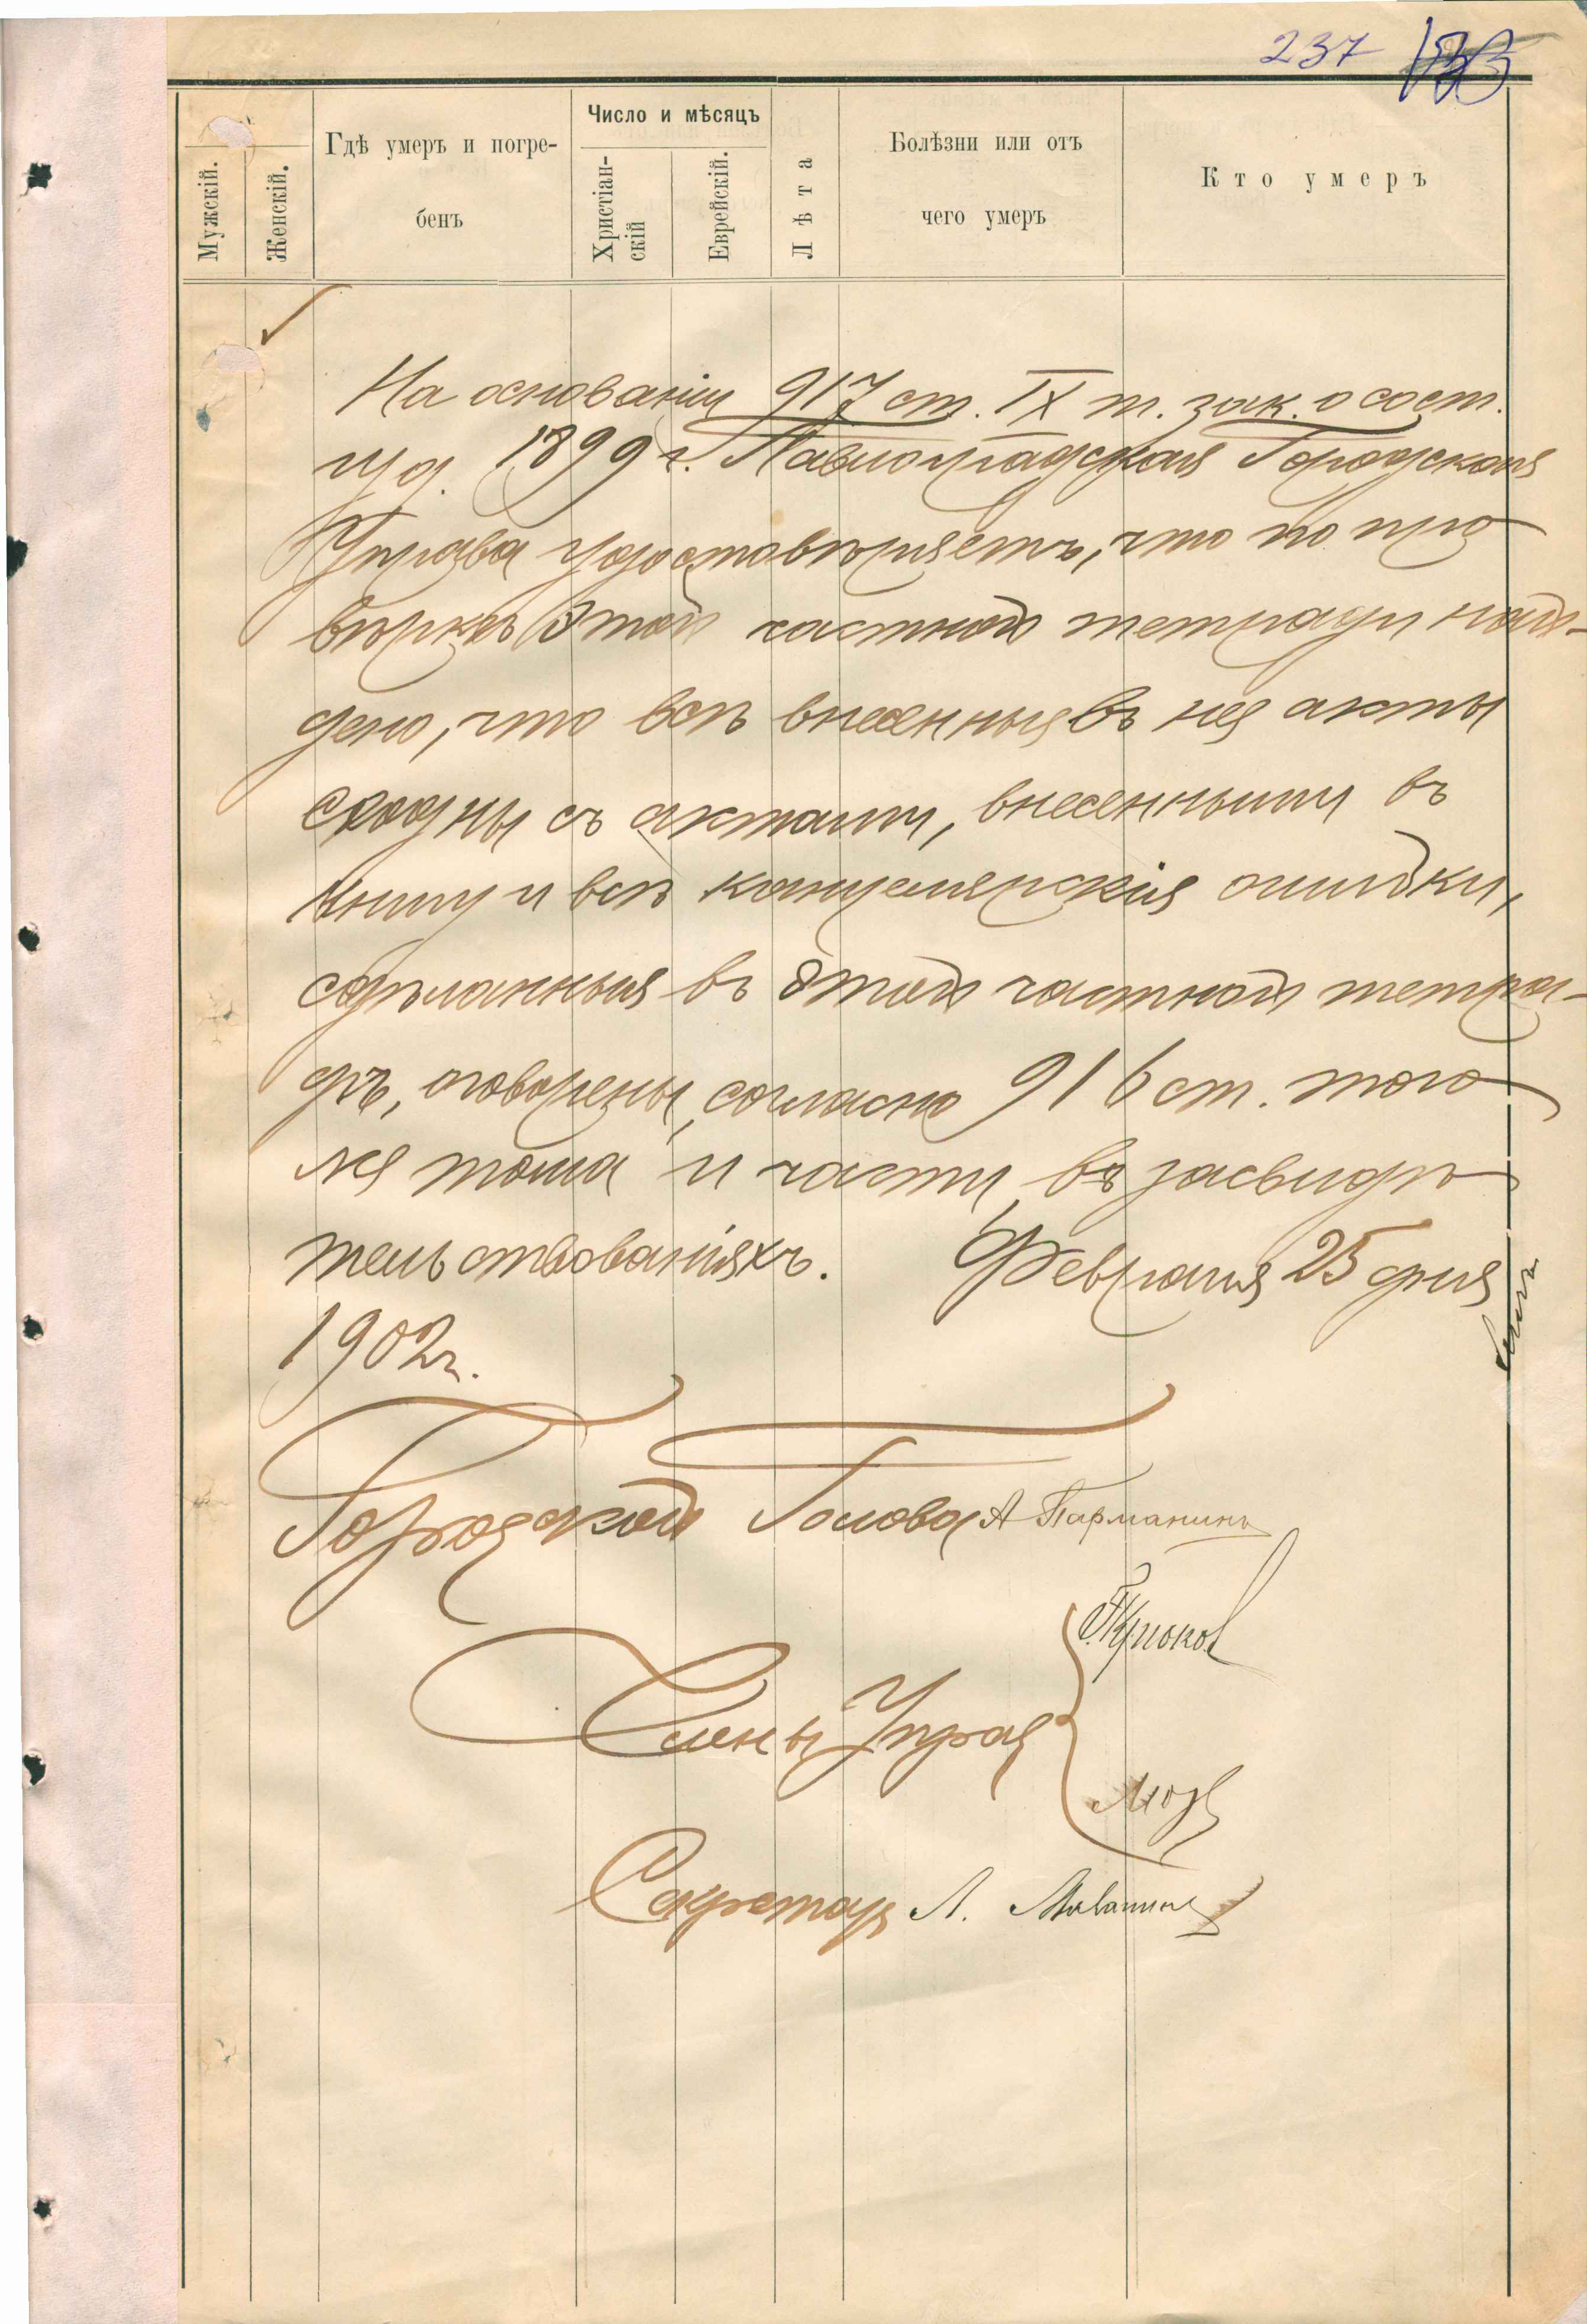 237
Мужскій.
Женскій.
Гдѣ умеръ и погре-
бенъ
Число и мѣсяцъ
Христіан-
скій
Еврейскій.
Лѣта
Болѣзни или отъ
чего умеръ
Кто умеръ
На основаніи 917 ст. IX т. зак. о сост.
изд. 1899 г. Павлоградская Городская
Управа удостовѣряетъ, что по про
вѣркѣ этой частной тетради най-
дено, что всѣ внесенныя въ нея акты
сходны съ актами, внесенными въ
книгу и всѣ канцелярскія ошибки,
сдѣланныя въ этой частной тетра-
дѣ, оговорены, согласно 916 ст. того
же тома и части, въ засвидѣ
тельствованіяхъ. Февраля 25 дня
1902 г.
Городской Голова А
Крюков
Члены Управ
Секретарь Л.